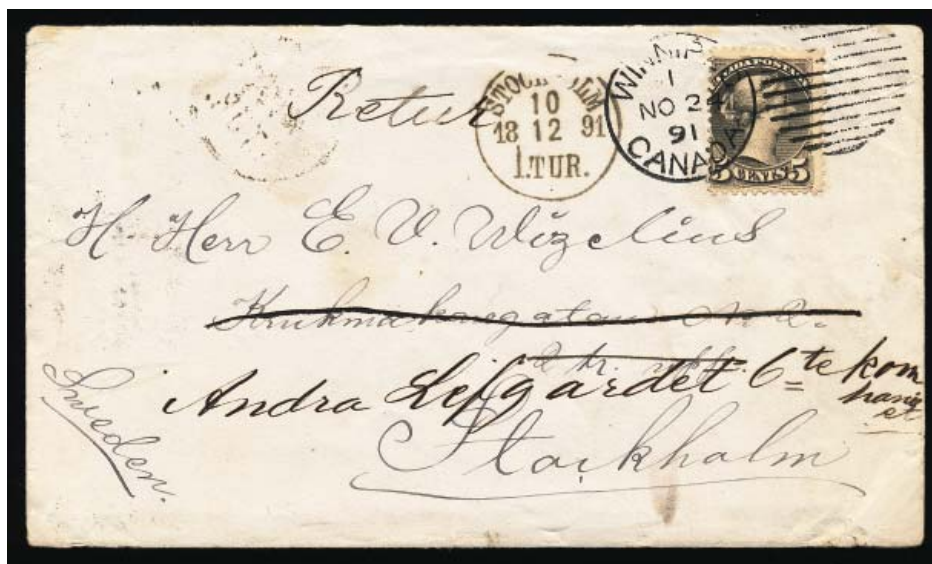 Retur
STOCKHOLM
10
18 12 91
1.TUR.
WINNIP
1
NO 24
91
CANADA
DA POSTA
5 CENTS 5
H. Herr E. V. Wizelius
Krukmakaregatan No 2.
2 tr.
Andra Lifgardet 6te kom
panig
et
Stockholm
Sweden.